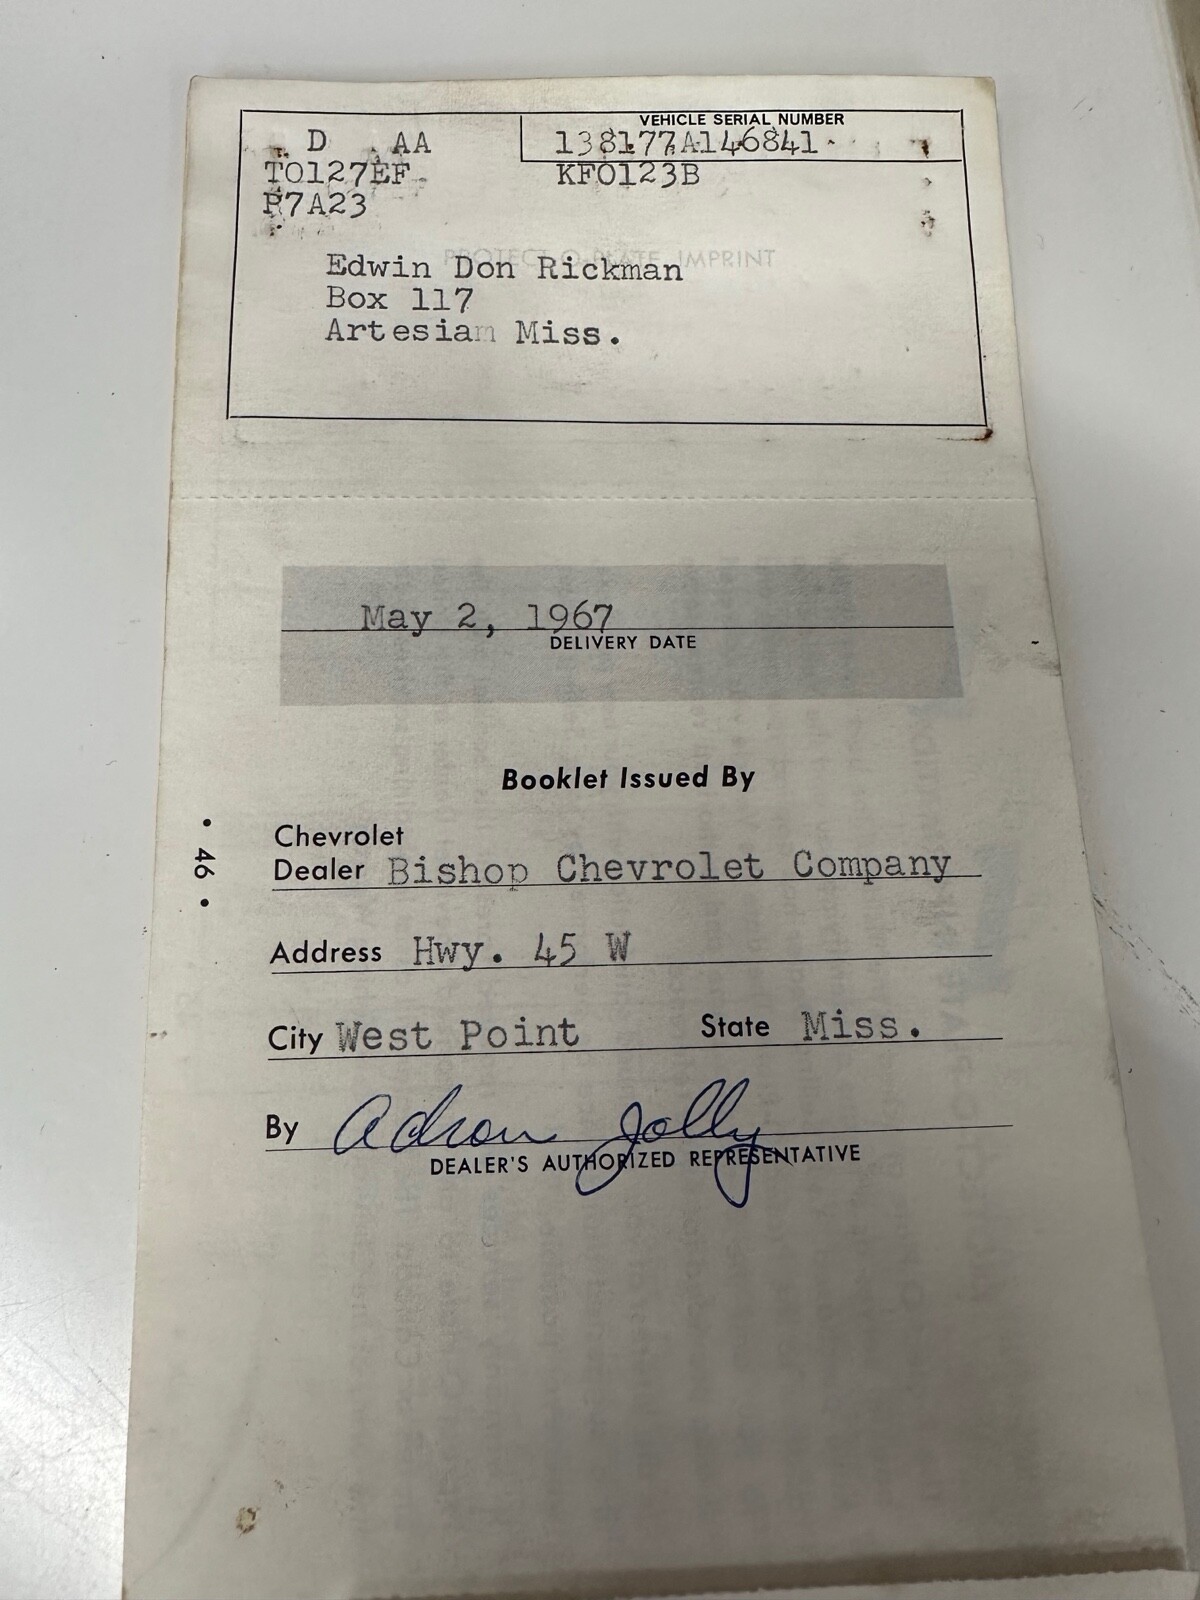 VEHICLE SERIAL NUMBER
D AA 138177A146841
TO127EF KFO123B
P7A23
PROTECT-O-PLATE IMPRINT
Edwin Don Rickman
Box 117
Artesian Miss.
May 2, 1967
DELIVERY DATE
Booklet Issued By
Chevrolet
Dealer Bishop Chevrolet Company
• 46 •
Address Hwy. 45 W
City West Point State Miss.
By Adron Jolly
DEALER'S AUTHORIZED REPRESENTATIVE